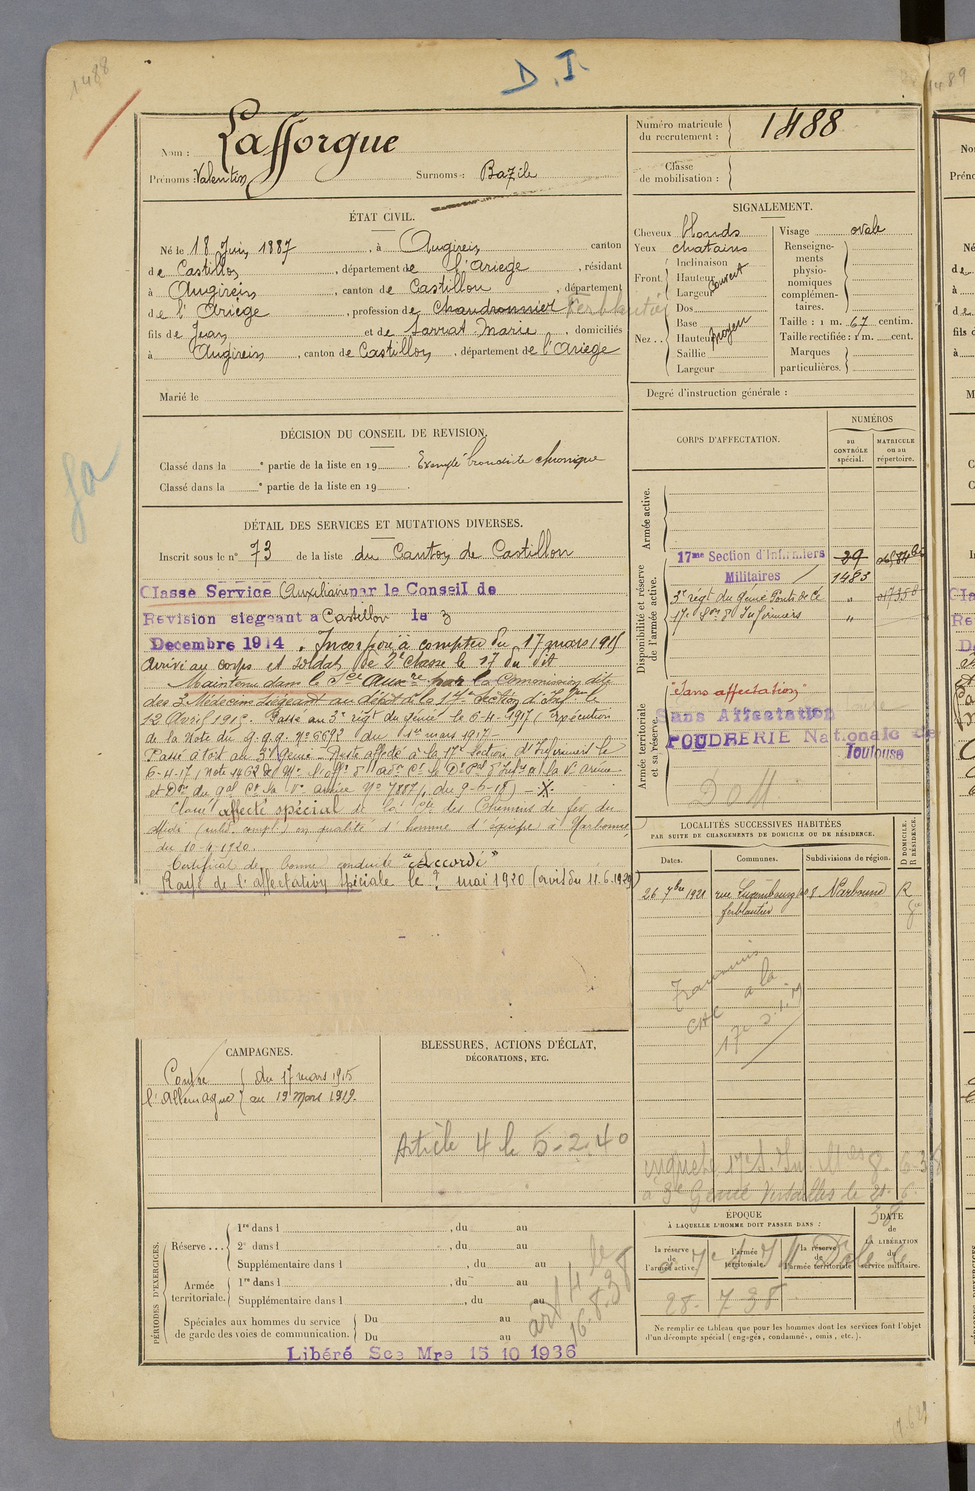 1488
D. I.
Nom : Lafforgue
Prénoms : Valentin Surnoms : Bazile
Numéro matricule du recrutement : 1488
Classe de mobilisation :
ÉTAT CIVIL.
Né le 18 Juin 1887, à Augirein canton
de Castillon, département de l'Ariège, résidant
à Augirein, canton de Castillon, département
de l'Ariège, profession de Chaudronnier Ferblantier
fils de Jean et de Sarrat Marie, domiciliés
à Augirein, canton de Castillon, département de l'Ariège
Marié le
SIGNALEMENT.
Cheveux blonds
Yeux chatains
Front. Inclinaison
Hauteur couvert
Largeur
Nez.. Dos
Base
Hauteur moyen
Saillie
Largeur
Visage ovale
Renseigne-
ments
physio-
nomiques
complémen-
taires.
Taille : 1 m. 67 centim.
Taille rectifiée : 1 m. cent.
Marques
particulières.
Degré d'instruction générale :
DÉCISION DU CONSEIL DE REVISION.
Classé dans la e partie de la liste en 19 . Exempté bronchite chronique
Classé dans la e partie de la liste en 19 .
DÉTAIL DES SERVICES ET MUTATIONS DIVERSES.
Inscrit sous le n° 73 de la liste du Canton de Castillon
Classe Service Auxiliaire par le Conseil de
Revision siegeant a Castillon le 3
Decembre 1914. Incorporé à compter du 17 mars 1915
Arrivé au corps et soldat de 2e classe le 17 du dit
Maintenu dans le Sce Auxre par la Commission dite
des 3 Médecins siégeant au dépôt de la 17e Section d'Infers le
12 Avril 1915. Passé au 3e régt du génie le 6-4-1917 (Exécution
de la Note du g.q.g. N° 6692 du 1er mars 1917 -
Passé à tort au 3e Génie - Reste affecté à la 17e Section d'Infirmiers le
6-4-17
Classé affecté spécial de la Cie des Chemins de fer du
Midi en qualité d'homme d'équipe à Narbonne,
du 10-4-1920.
Certificat de bonne conduite "Accordé"
Rayé de l'affectation spéciale le ? mai 1920 (avis du 11.6.1920)
CORPS D'AFFECTATION.
NUMÉROS
au CONTRÔLE spécial.
MATRICULE ou au répertoire.
Armée active.
Disponibilité et réserve de l'armée active.
17me Section d'Infirmiers 29
Militaires 1483
3e régt du génie "
17e Son d'Infirmiers "
Armée territoriale et sa réserve.
"Sans affectation"
Sans Affectation
POUDRERIE Nationale de
Toulouse
LOCALITÉS SUCCESSIVES HABITÉES
PAR SUITE DE CHANGEMENTS DE DOMICILE OU DE RÉSIDENCE.
Dates. Communes. Subdivisions de région. D DOMICILE. R RÉSIDENCE.
26 7bre 1921 rue Luxembourg no 8 Narbonne R
ferblantier
à la
17e S.I.M
CAMPAGNES.
Contre du 17 mars 1915
l'Allemagne au 19 Mars 1919.
BLESSURES, ACTIONS D'ÉCLAT,
DÉCORATIONS, ETC.
Article 4 le 5-2-40
3e Génie Versailles le
PÉRIODES D'EXERCICES.
Réserve ... 1re dans l , du au
2e dans l , du au
Supplémentaire dans l , du au
Armée territoriale. 1re dans l , du au
Supplémentaire dans l , du au
Spéciales aux hommes du service Du au
de garde des voies de communication. Du au
art 4 le
16.8.38
ÉPOQUE
À LAQUELLE L'HOMME DOIT PASSER DANS :
la réserve de l'armée active.
l'armée territoriale.
la réserve de l'armée territoriale
DATE
de
LA LIBÉRATION
du
service militaire.
28. 7 38
Ne remplir ce tableau que pour les hommes dont les services font l'objet
d'un décompte spécial (engagés, condamnés, omis, etc.).
Libéré Sce Mre 15 10 1936